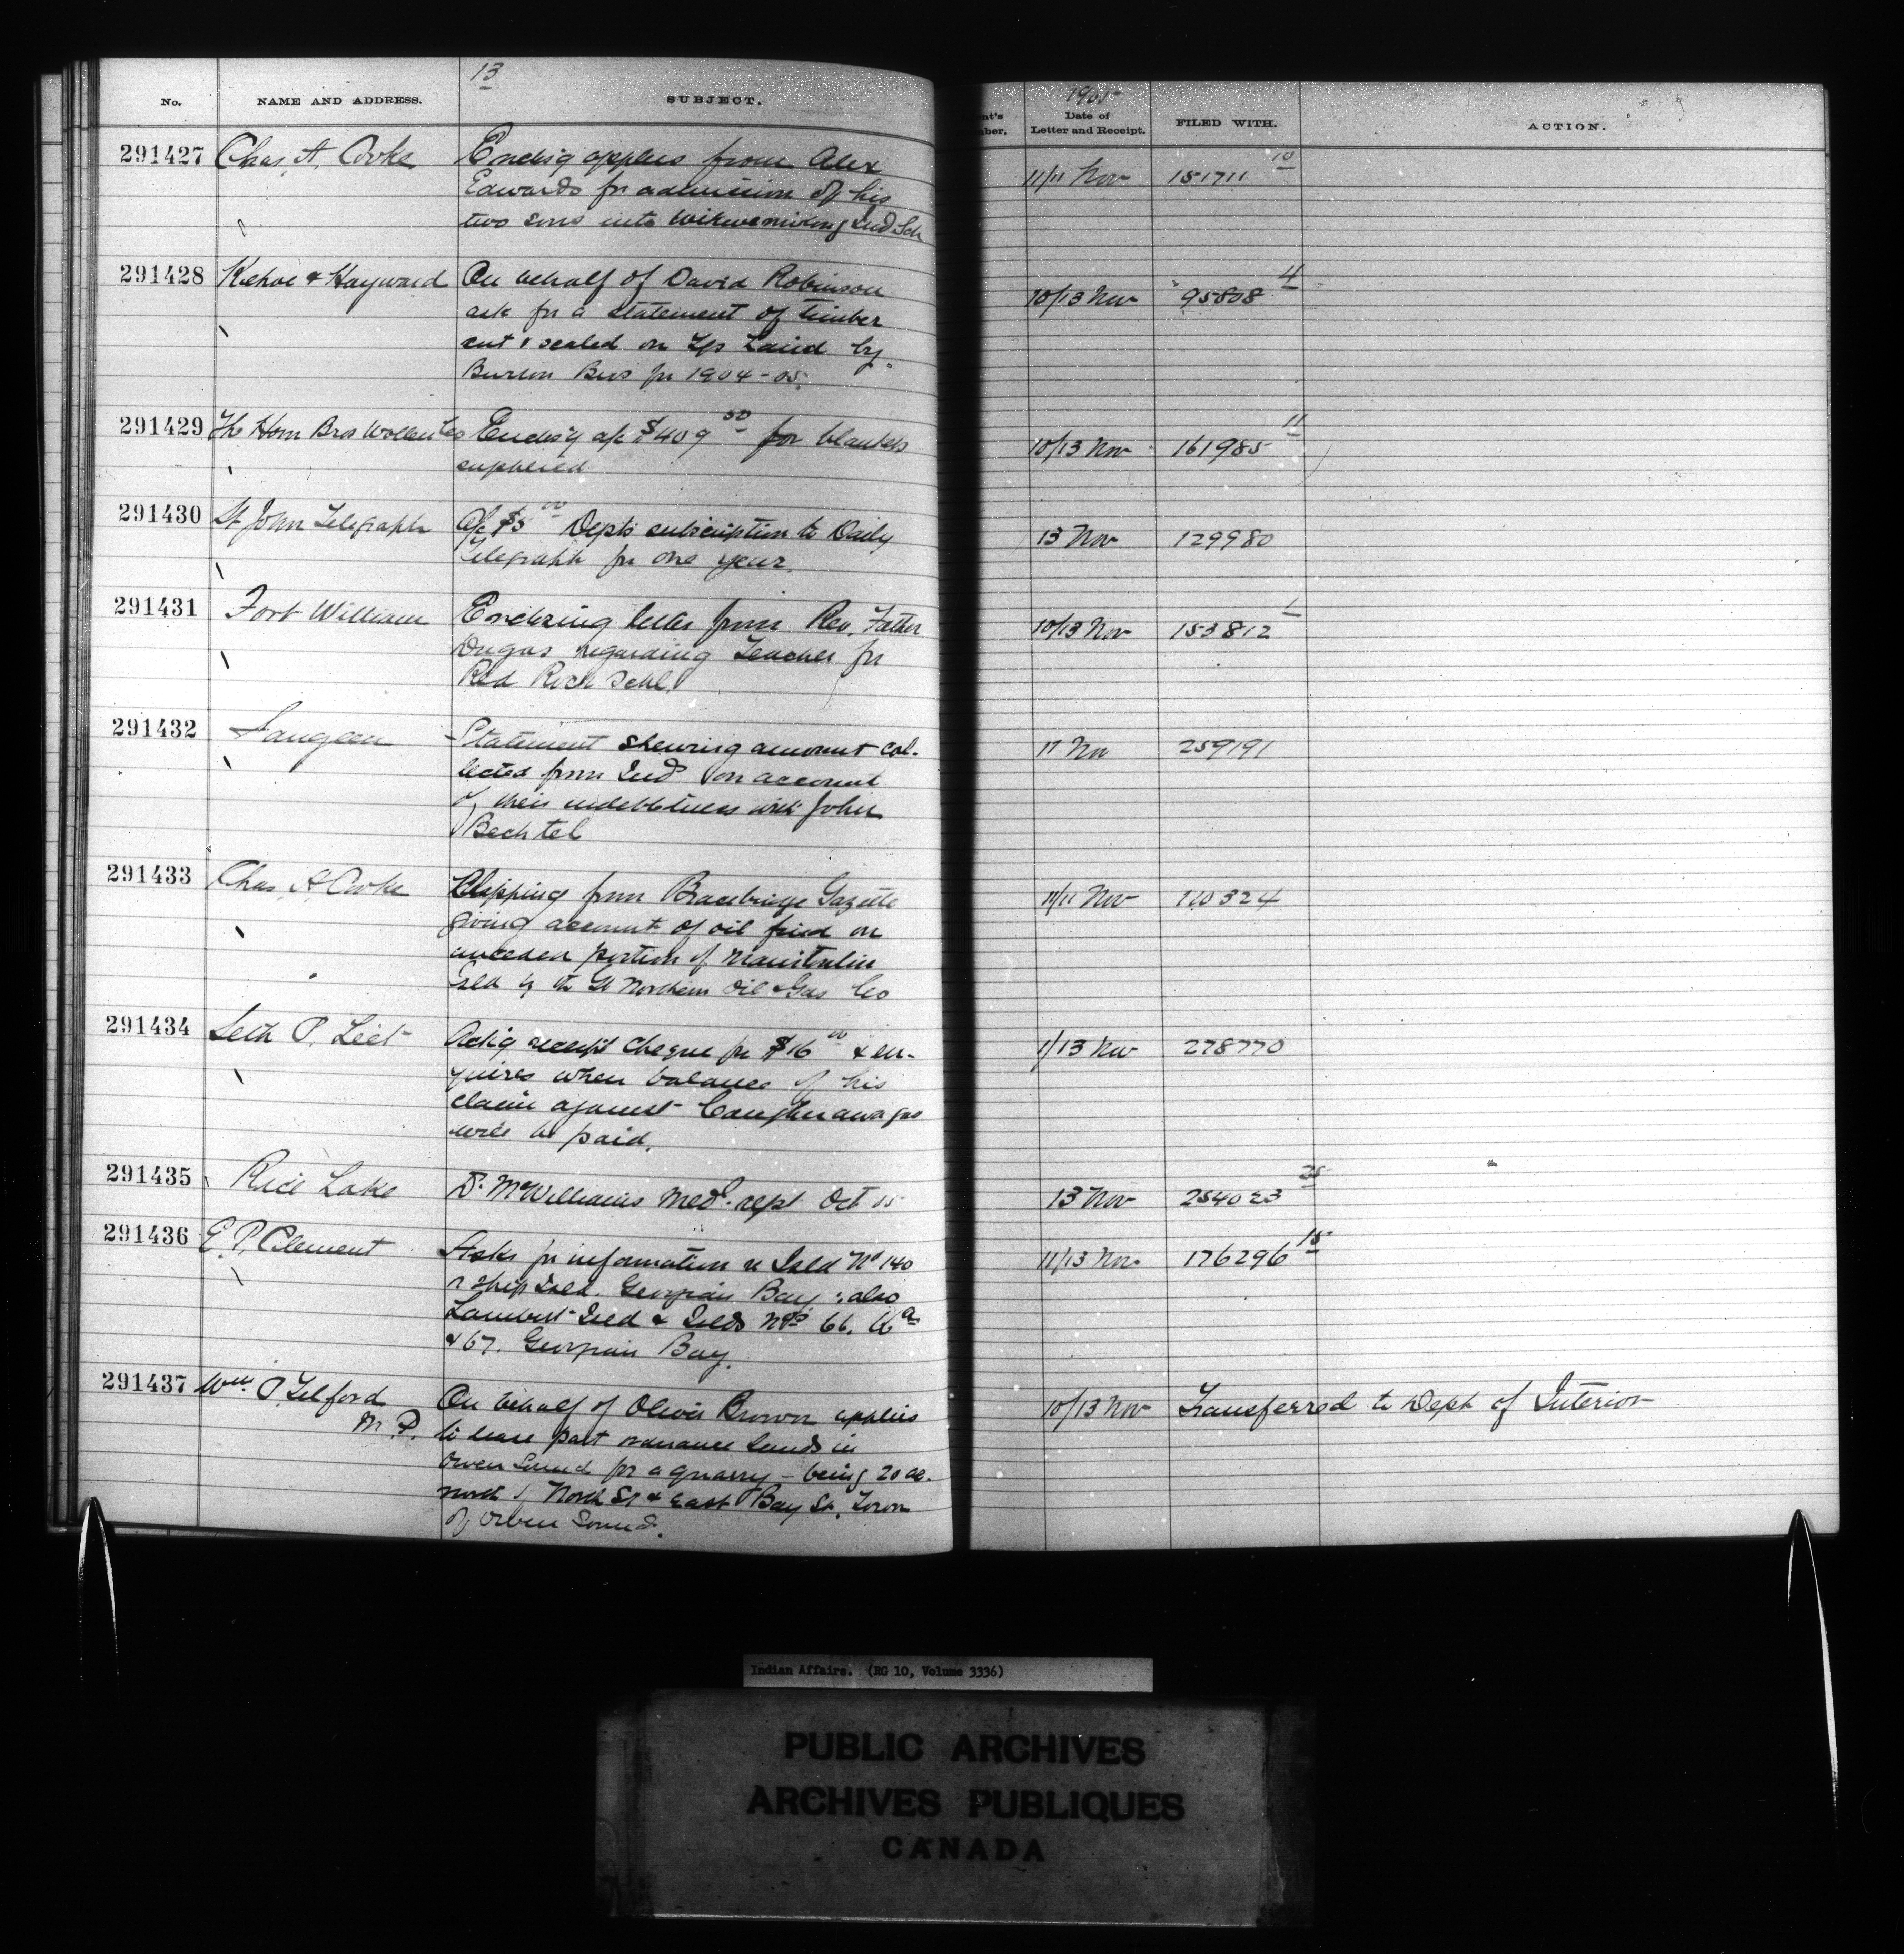 13
No. NAME AND ADDRESS. SUBJECT.
291427 Chas. A. Cooke Enclsg applns from Alex
Edwards for admission of his
two sons into Wikwemikong Ind Sch
291428 Kehoe & Hayward On behalf of David Robinson
ask for a statement of timber
cut & scaled on Tp Laird by
Burton Bros for 1904-05.
291429 The Horn Bros Wollen Co Enclsg a/c $409 50 for blankets
supplied
291430 St John Telegraph A/c $5 00 Depts subscription to Daily
Telegraph for one year.
291431 Fort William Enclosing letter from Rev. Father
Dugas regarding Teacher for
Red Rock Schl.
291432 Saugeen Statement shewing amount col-
lected from Inds on account
of their indebtedness with John
Bechtel
291433 Chas. A. Cooke Clipping from Bracebridge Gazette
giving account of oil find on
unceded portion of Manitoulin
Isld by the Gt Northern Oil & Gas Co
291434 Seth P. Leet Ackg receipt cheque for $16 00 & en-
quires when balance of his
claim against Caughnawagas
will be paid.
291435 Rice Lake Dr. McWilliams Med. rept Oct 05
291436 E. P. Clement Asks for information re Isld No 140
or Ship Isld. Georgian Bay; also
Lambert Isld & Islds Nos 66, 66a
& 67. Georgian Bay.
291437 Wm. P. Telford
M. P.
On behalf of Oliver Brown applies
to lease part ordnance lands in
Owen Sound for a quarry - being 20 ac.
north of North St & East Bay St. Town
of Owen Sound.
1905
nt's
ber. Date of
Letter and Receipt. FILED WITH. ACTION.
11/11 Nov 151711 10
10/13 Nov 95808 4
10/13 Nov 161985 11
13 Nov 129980
10/13 Nov 153812 1
11 Nov 259191
11/11 Nov 110324
11/13 Nov 278770
13 Nov 254023 25
11/13 Nov 176296 15
10/13 Nov Transferred to Dept of Interior
Indian Affairs. (RG 10, Volume 3336)
PUBLIC ARCHIVES
ARCHIVES PUBLIQUES
CANADA